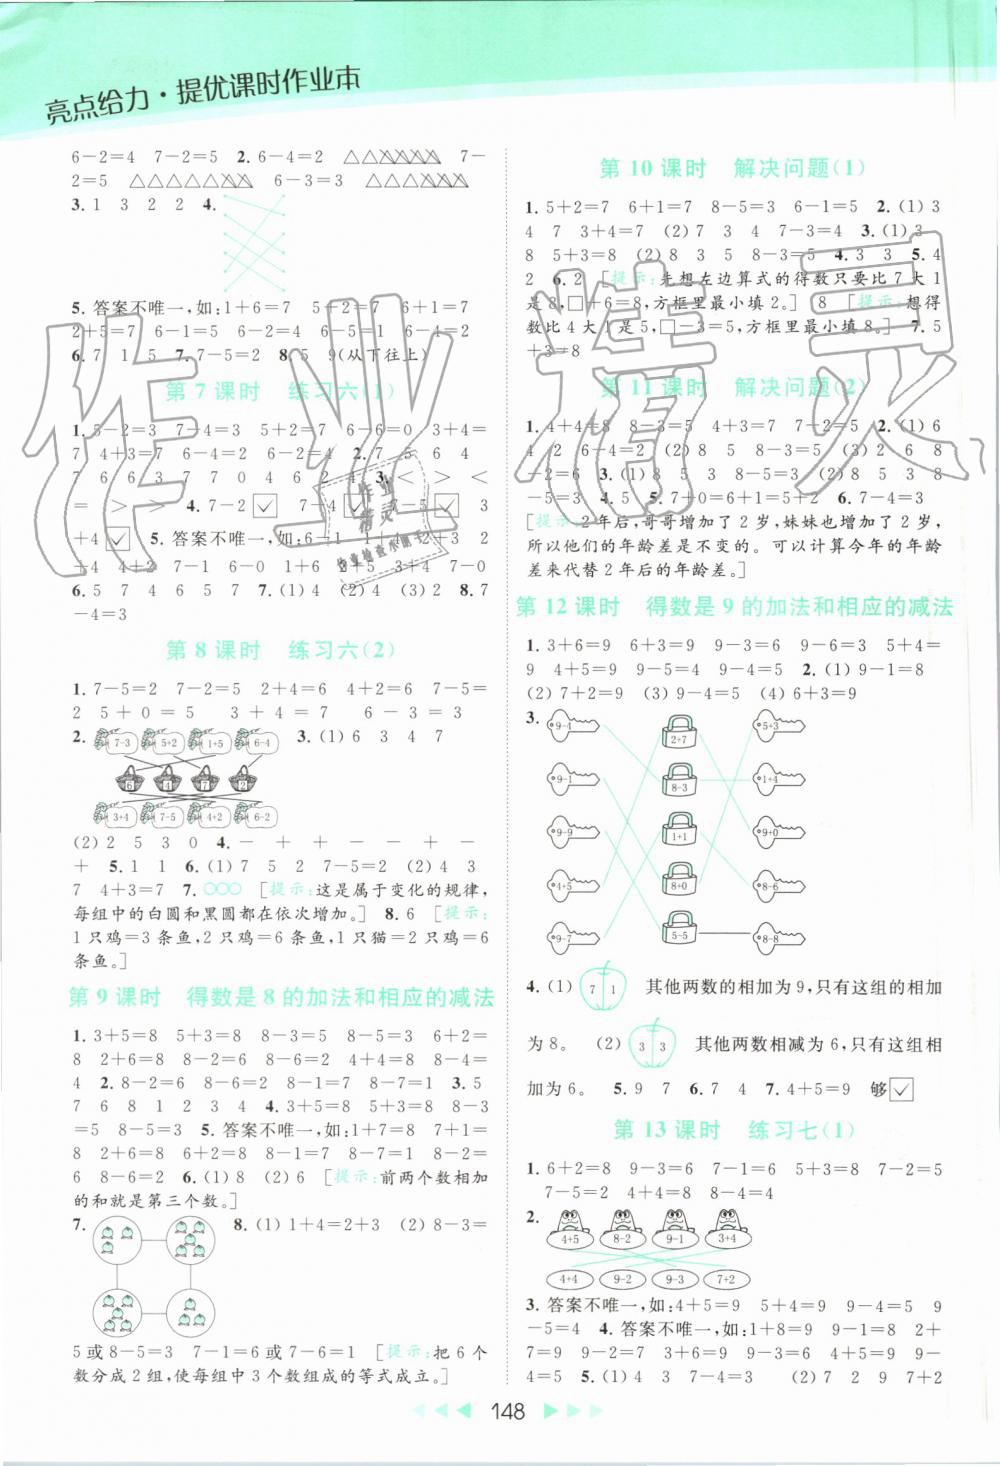 亮点给力·提优课时作业本
6-2=4 7-2=5 2. 6-4=2 7-
2=5 6-3=3
3. 1 3 2 2 4.
5. 答案不唯一,如:1+6=7 5+2=7 6+1=7
2+5=7 6-1=5 6-2=4 6-5=1 6-4=2
6. 7 1 5 7. 7-5=2 8. 5 9(从下往上)
第 7 课时 练习六(1)
1. 5-2=3 7-4=3 5+2=7 6-6=0 3+4=
7 4+3=7 6-4=2 2. 7 5 6
7 6 6 3 7 7 0 4 6 2 4 3. < > <
= > > 4. 7-2 ✓ 7-4 ✓ 7-5 ✓ 3
+4 ✓ 5. 答案不唯一,如:6-1 1+4 2+3 2
+4 4+2 7-1 6-0 1+6 5+2 4+3 7-0
6. 5 7 4 6 5 7 7. (1) 4 (2) 4 (3) 2 8. 7-
4=3
第 8 课时 练习六(2)
1. 7-5=2 7-2=5 2+4=6 4+2=6 7-5=
2 5+0=5 3+4=7 6-3=3
2. 7-3 5+2 1+5 6-4 3. (1) 6 3 4 7
6 4 7 2
3+4 7-5 4+2 6-2
(2) 2 5 3 0 4. - + + - - + -
+ 5. 1 1 6. (1) 7 5 2 7-5=2 (2) 4 3
7 4+3=7 7. ○○○ [提示:这是属于变化的规律,
每组中的白圆和黑圆都在依次增加。] 8. 6 [提示:
1 只鸡=3 条鱼,2 只鸡=6 条鱼,1 只猫=2 只鸡=6
条鱼。]
第 9 课时 得数是 8 的加法和相应的减法
1. 3+5=8 5+3=8 8-3=5 8-5=3 6+2=
8 2+6=8 8-2=6 8-6=2 4+4=8 8-4=
4 2. 8-2=6 8-6=2 8-1=7 8-7=1 3. 5
7 6 8 1 2 3 4 4. 3+5=8 5+3=8 8-3
=5 8-5=3 5. 答案不唯一,如:1+7=8 7+1=
8 2+6=8 6+2=8 8-1=7 8-7=1 8-2=
6 8-6=2 6. (1) 8 (2) 6 [提示:前两个数相加
的和就是第三个数。]
7. 8. (1) 1+4=2+3 (2) 8-3=
5 或 8-5=3 7-1=6 或 7-6=1 [提示:把 6 个
数分成 2 组,使每组中 3 个数组成的等式成立。]
第 10 课时 解决问题(1)
1. 5+2=7 6+1=7 8-5=3 6-1=5 2. (1) 3
4 7 3+4=7 (2) 7 3 4 7-3=4 3. (1) 3
8 5+3=8 (2) 8 3 5 8-3=5 4. 3 3 5. 4
2 6. 2 [提示:先想左边算式的得数只要比 7 大 1
是 8,□+6=8,方框里最小填 2。] 8 [提示:想得
数比 4 大 1 是 5,□-3=5,方框里最小填 8。] 7. 5
+3=8
第 11 课时 解决问题(2)
1. 4+4=8 8-3=5 4+3=7 7-2=5 2. (1) 6
4 2 6-4=2 (2) 2 6 8
-2=6 3. (1) 8 5 3 8-5=3 (2) 8 5 3 8
-5=3 4. 5 5. 7+0=6+1=5+2 6. 7-4=3
[提示:2 年后,哥哥增加了 2 岁,妹妹也增加了 2 岁,
所以他们的年龄差是不变的。可以计算今年的年龄
差来代替 2 年后的年龄差。]
第 12 课时 得数是 9 的加法和相应的减法
1. 3+6=9 6+3=9 9-3=6 9-6=3 5+4=
9 4+5=9 9-5=4 9-4=5 2. (1) 9-1=8
(2) 7+2=9 (3) 9-4=5 (4) 6+3=9
3. 9-4 2+7 5+3
9-1 8-3 1+4
9-9 1+1 9+0
4+5 8+0 8-6
9-7 5-5 8-8
4. (1) 7 1 其他两数的相加为 9,只有这组的相加
为 8。 (2) 3 3 其他两数相减为 6,只有这组相
加为 6。 5. 9 7 6. 7 4 7. 4+5=9 够 ✓
第 13 课时 练习七(1)
1. 6+2=8 9-3=6 7-1=6 5+3=8 7-2=5
7-5=2 4+4=8 8-4=4
2. 4+5 8-2 9-1 3+4
4+4 9-2 9-3 7+2
3. 答案不唯一,如:4+5=9 5+4=9 9-4=5 9
-5=4 4. 答案不唯一,如:1+8=9 9-1=8 2+
7=9 9-2=7 3+6=9 9-3=6 4+5=9 9-
4=5 5. (1) 4 3 7-4=3 (2) 7 2 9 7+2
148